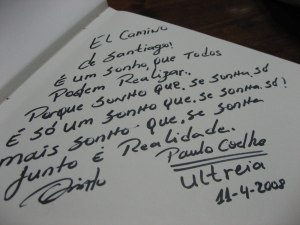 El Camino
de Santiago!
É um sonho, que todos
Podem Realizar..
Porque sonho que. se sonha. só
É só um sonho que. se sonha. só!
mais sonho. que. se sonha
junto é Realidade.
Paulo Coelho
ultreia
11-4-2008